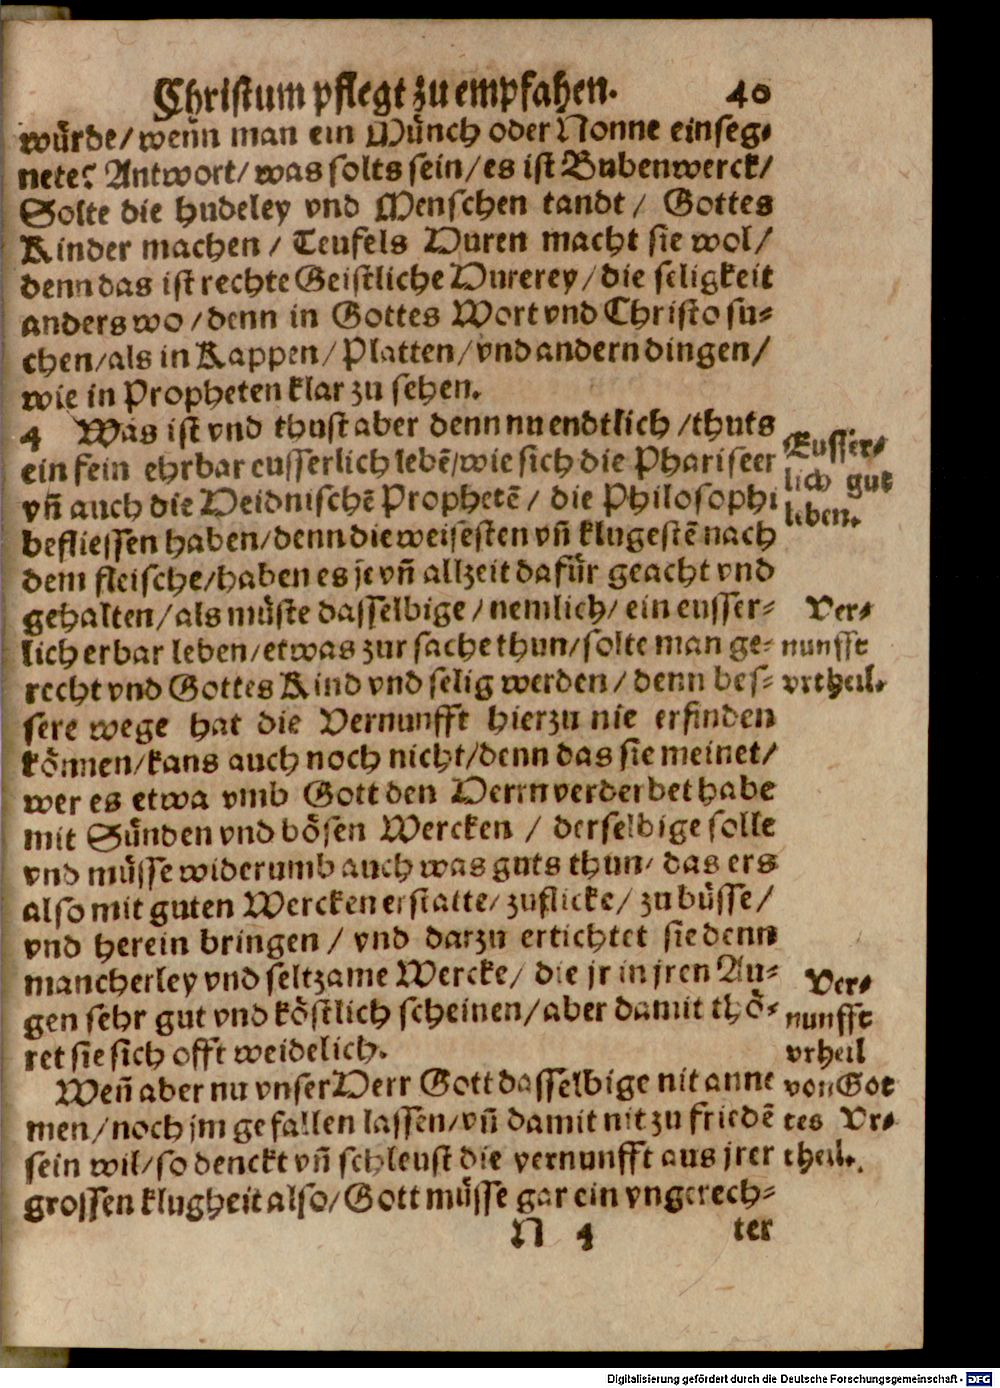 Christum pflegt zu empfahen. 40
würde/ wenn man ein Münch oder Nonne einseg-
nete? Antwort/ was solts sein/ es ist Bubenwerck/
Solte die hudeley vnd Menschen tandt/ Gottes
Kinder machen/ Teufels Huren macht sie wol/
denn das ist rechte Geistliche Hurerey/ die seligkeit
anders wo/ denn in Gottes Wort vnd Christo su-
chen/ als in Kappen/ Platten/ vnd andern dingen/
wie in Propheten klar zu sehen.
4 Was ist vnd thust aber denn nu endtlich/ thuts
ein fein ehrbar eusserlich lebē/ wie sich die Phariseer
vñ auch die Heidnischē Prophetē/ die Philosophi
befliessen haben/ denn die weisesten vñ klugestē nach
dem fleische/ haben es je vñ allzeit dafür geacht vnd
gehalten/ als müste dasselbige/ nemlich/ ein eusser-
lich erbar leben/ etwas zur sache thun/ solte man ge-
recht vnd Gottes Kind vnd selig werden/ denn bes-
sere wege hat die Vernunfft hierzu nie erfinden
können/ kans auch noch nicht/ denn das sie meinet/
wer es etwa vmb Gott den Herrn verderbet habe
mit Sünden vnd bösen Wercken/ derselbige solle
vnd müsse widerumb auch was guts thun/ das ers
also mit guten Wercken erstatte/ zuflicke/ zu büsse/
vnd herein bringen/ vnd darzu ertichtet sie denn
mancherley vnd seltzame Wercke/ die jr in jren Au-
gen sehr gut vnd köstlich scheinen/ aber damit thö-
ret sie sich offt weidelich.
Weñ aber nu vnser Herr Gott dasselbige nit anne
men/ noch jm gefallen lassen/ vñ damit nit zu friedē
sein wil/ so denckt vñ schleust die vernunfft aus jrer
grossen klugheit also/ Gott müsse gar ein vngerech-
N 4 ter
Eusser-
lich gut
leben.
Ver-
nunfft
vrtheil.
Ver-
nunfft
vrheil
von Got
tes Vr-
theil.
Digitalisierung gefördert durch die Deutsche Forschungsgemeinschaft - DFG